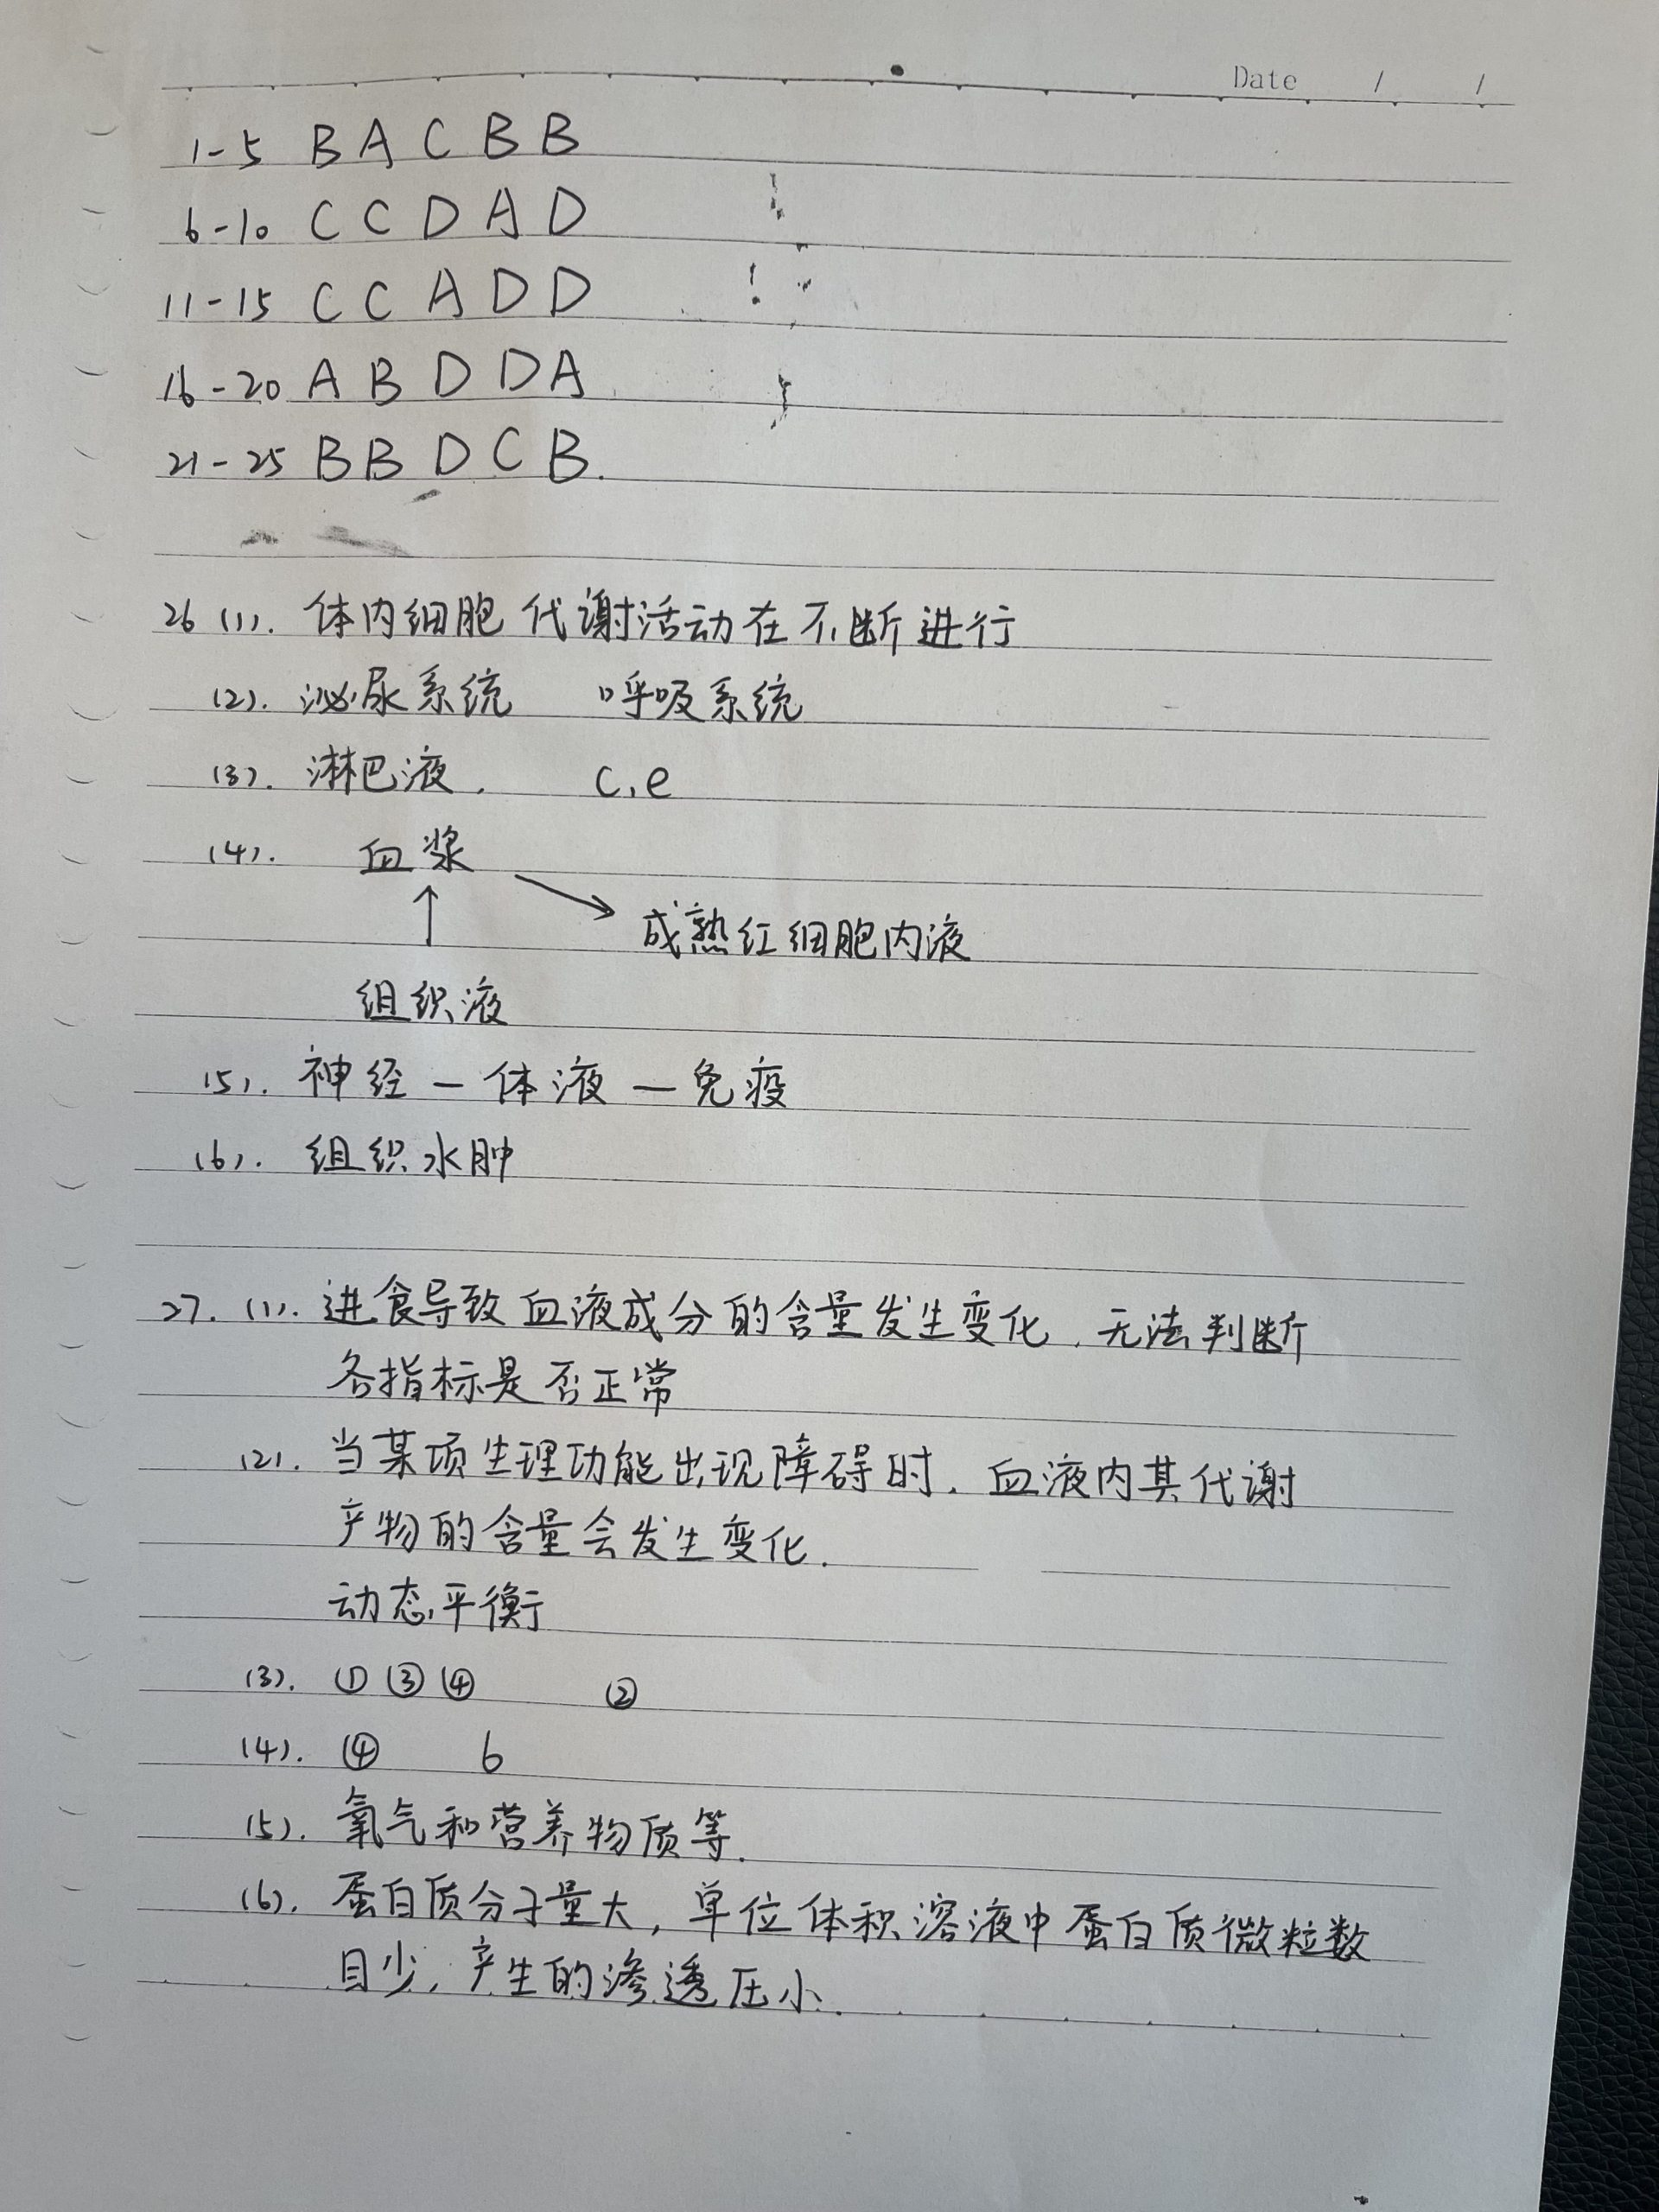 Date / /
1-5 B A C B B
6-10 C C D A D
11-15 C C A D D
16-20 A B D D A
21-25 B B D C B.
26 (1). 体内细胞代谢活动在不断进行
(2). 泌尿系统 呼吸系统
(3). 淋巴液. c.e
(4). 血浆
↑ ↘ 成熟红细胞内液
组织液
(5). 神经—体液—免疫
(6). 组织水肿
27. (1). 进食导致血液成分的含量发生变化,无法判断
各指标是否正常
(2). 当某项生理功能出现障碍时.血液内其代谢
产物的含量会发生变化.
动态平衡
(3). ①③④ ②
(4). ④ 6
(5). 氧气和营养物质等.
(6). 蛋白质分子量大,单位体积溶液中蛋白质微粒数
目少,产生的渗透压小.